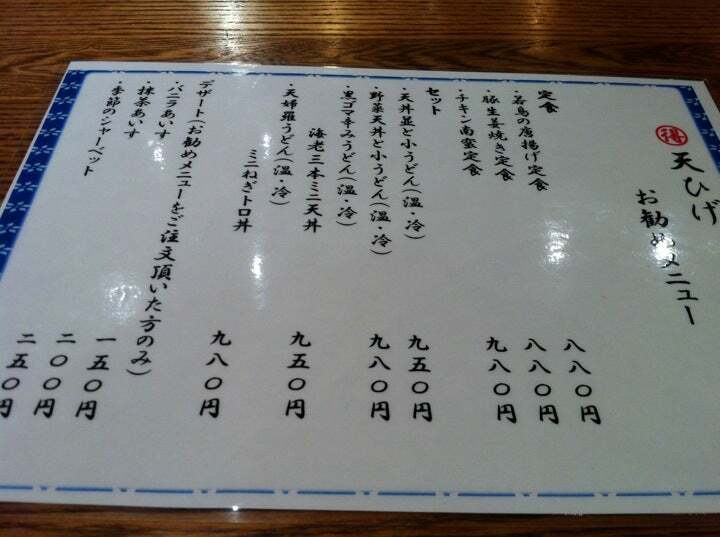 得 天ひげ
お勧めメニュー
定食
・若鳥の唐揚げ定食 八八〇円
・豚生姜焼き定食 八八〇円
・チキン南蛮定食 九八〇円
セット
・天丼並と小うどん(温・冷) 九五〇円
・野菜天丼と小うどん(温・冷) 九八〇円
・黒ゴマ辛みうどん(温・冷)
海老三本ミニ天丼 九五〇円
・天婦羅うどん(温・冷)
ミニねぎトロ丼 九八〇円
デザート(お勧めメニューをご注文頂いた方のみ)
・バニラあいす 一五〇円
・抹茶あいす 二〇〇円
・季節のシャーベット 二五〇円